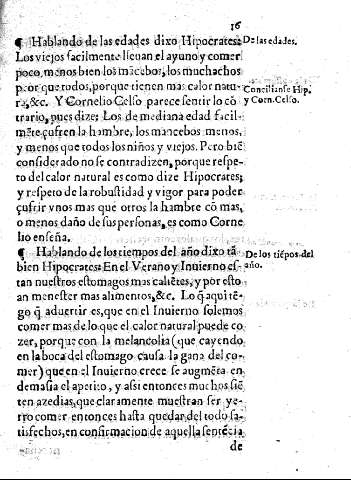 16
¶ Hablando de las edades dixo Hipocrates:
De las edades.
Los viejos facilmente lleuan el ayuno y comer
poco, menos bien los mãcebos, los muchachos
peor que todos, porque tienen mas calor natu-
ra, &c. Y Cornelio Celso parece sentir lo cõ
Concilianse Hip.
y Corn. Celso.
trario, pues dize; Los de mediana edad facil-
mẽte çufren la hambre, los mancebos menos,
y menos que todos los niños y viejos. Pero biẽ
considerado no se contradizen, porque respe-
to del calor natural es como dize Hipocrates;
y respeto de la robustidad y vigor para poder
çufrir vnos mas que otros la hambre cõ mas,
o menos daño de sus personas, es como Corne
lio enseña.
¶ Hablando de los tiempos del año dixo tã
De los tiẽpos del
año.
bien Hipocrates: En el Verano y Inuierno es-
tan nuestros estomagos mas caliẽtes, y por esto
an menester mas alimentos, &c. Lo q̃ aqui tẽ-
go q̃ aduertir es, que en el Inuierno solemos
comer mas de lo que el calor natural puede co
zer, porque con la melancolia (que cayendo
en la boca del estomago causa la gana del co-
mer) que en el Inuierno crece se augmẽta en
demasia el apetito, y assi entonces muchos siẽ
ten azedias, que claramente muestran ser ye-
rro comer entonces hasta quedar del todo sa-
tisfechos, en confirmacion de aquella sentẽcia
de